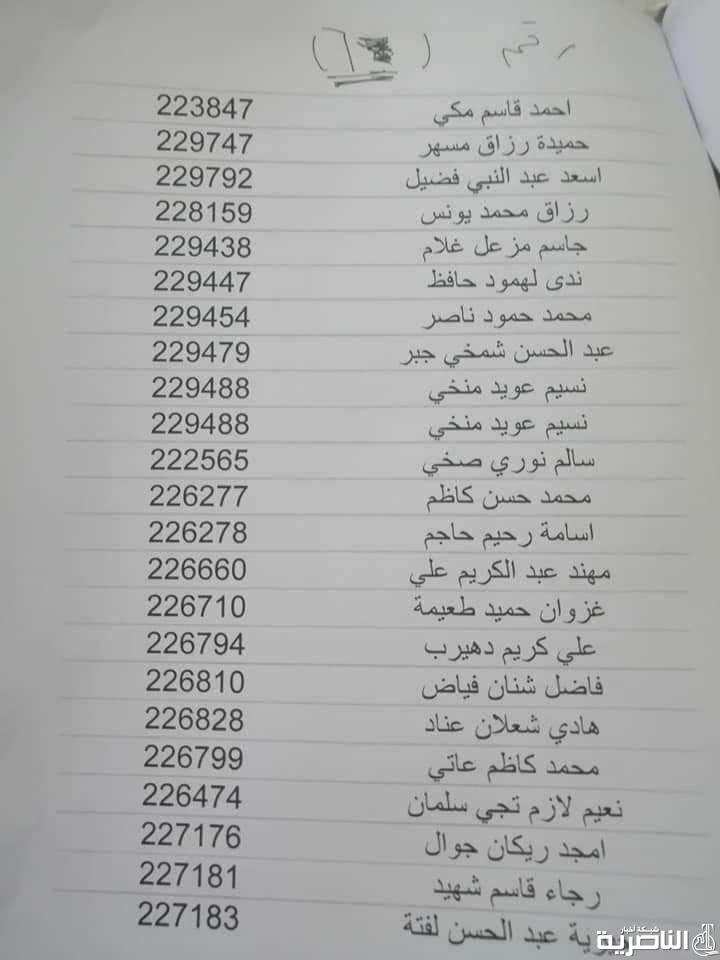 رقم ( 6 )
احمد قاسم مكي 223847
حميدة رزاق مسهر 229747
اسعد عبد النبي فضيل 229792
رزاق محمد يونس 228159
جاسم مزعل غلام 229438
ندى لهمود حافظ 229447
محمد حمود ناصر 229454
عبد الحسن شمخي جبر 229479
نسيم عويد منخي 229488
نسيم عويد منخي 229488
سالم نوري صخي 222565
محمد حسن كاظم 226277
اسامة رحيم حاجم 226278
مهند عبد الكريم علي 226660
غزوان حميد طعيمة 226710
علي كريم دهيرب 226794
فاضل شنان فياض 226810
هادي شعلان عناد 226828
محمد كاظم عاتي 226799
نعيم لازم تجي سلمان 226474
امجد ريكان جوال 227176
رجاء قاسم شهيد 227181
عبد الحسن لفتة 227183
شبكة أخبار
الناصرية